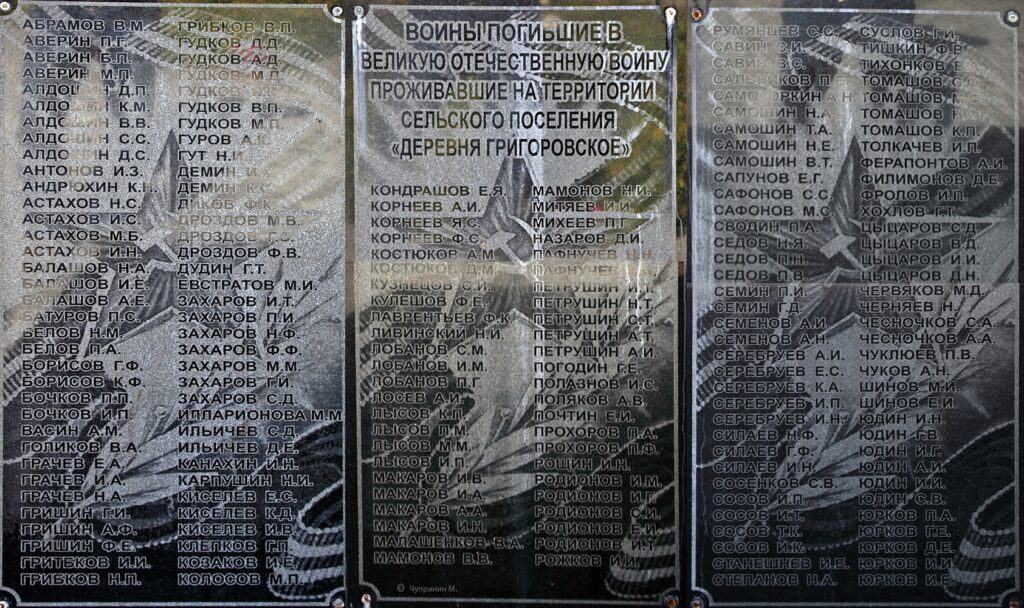 АБРАМОВ В.М.
АВЕРИН П.Г.
АВЕРИН Б.П.
АВЕРИН М.П.
АЛДОШИН Д.П.
АЛДОШИН К.М.
АЛДОШИН В.В.
АЛДОШИН С.С.
АЛДОШИН Д.С.
АНТОНОВ И.З.
АНДРЮХИН К.Н.
АСТАХОВ Н.С.
АСТАХОВ И.С.
АСТАХОВ М.Б.
АСТАХОВ И.Н.
БАЛАШОВ Н.А.
БАЛАШОВ И.Е.
БАЛАШОВ А.Е.
БАТУРОВ П.С.
БЕЛОВ Н.М.
БЕЛОВ П.А.
БОРИСОВ Г.Ф.
БОРИСОВ К.Ф.
БОЧКОВ П.П.
БОЧКОВ И.П.
ВАСИН А.М.
ГОЛИКОВ В.А.
ГРАЧЕВ Е.А.
ГРАЧЕВ И.А.
ГРАЧЕВ Н.А.
ГРИШИН Г.И.
ГРИШИН А.Ф.
ГРИШИН Ф.Е.
ГРИТЬКОВ И.И.
ГРИБКОВ Н.П.
ГРИБКОВ В.П.
ГУДКОВ Д.Д.
ГУДКОВ А.Д.
ГУДКОВ М.Д.
ГУДКОВ
ГУДКОВ В.П.
ГУДКОВ М.П.
ГУРОВ
ГУТ Н.И.
ДЕМИН
ДЕМИН
ДИКОВ Ф.К.
ДРОЗДОВ М.В.
ДРОЗДОВ
ДРОЗДОВ Ф.В.
ДУДИН Г.Т.
ЕВСТРАТОВ М.И.
ЗАХАРОВ И.Т.
ЗАХАРОВ П.И.
ЗАХАРОВ Н.Ф.
ЗАХАРОВ Ф.Ф.
ЗАХАРОВ М.М.
ЗАХАРОВ Г.И.
ЗАХАРОВ С.Д.
ИЛЛАРИОНОВА М.М.
ИЛЬИЧЕВ С.Д.
ИЛЬИЧЕВ Д.Е.
КАНАХИН И.Н.
КАРПУШИН Н.И.
КИСЕЛЕВ Е.С.
КИСЕЛЕВ К.Д.
КИСЕЛЕВ И.В.
КЛЕПКОВ Г.П.
КОЗАКОВ И.Е.
КОЛОСОВ М.П.
ВОИНЫ ПОГИБШИЕ В
ВЕЛИКУЮ ОТЕЧЕСТВЕННУЮ ВОЙНУ
ПРОЖИВАВШИЕ НА ТЕРРИТОРИИ
СЕЛЬСКОГО ПОСЕЛЕНИЯ
«ДЕРЕВНЯ ГРИГОРОВСКОЕ»
КОНДРАШОВ Е.Я.
КОРНЕЕВ А.И.
КОРНЕЕВ Я.С.
КОРНЕЕВ Ф.С.
КОСТЮКОВ А.М.
КОСТЮКОВ Д.М.
КУЗНЕЦОВ С.И.
КУЛЕШОВ Ф.Е.
ЛАВРЕНТЬЕВ Ф.К.
ЛИВИНСКИЙ Н.И.
ЛОБАНОВ С.М.
ЛОБАНОВ И.М.
ЛОБАНОВ П.Г.
ЛОСЕВ А.И.
ЛЫСОВ К.П.
ЛЫСОВ П.М.
ЛЫСОВ М.М.
ЛЫСОВ И.П.
МАКАРОВ И.В.
МАКАРОВ И.А.
МАКАРОВ А.А.
МАКАРОВ И.Н.
МАЛАШЕНКОВ В.А.
МАМОНОВ В.В.
МАМОНОВ Н.И.
МИТЯЕВ И.И.
МИХЕЕВ П.П.
НАЗАРОВ Д.И.
ПАФНУЧЕВ
ПАФНУЧЕВ
ПЕТРУШИН
ПЕТРУШИН Н.Т.
ПЕТРУШИН С.Т.
ПЕТРУШИН В.Г.
ПЕТРУШИН А.И.
ПОГОДИН Г.Е.
ПОЛАЗНОВ И.С.
ПОЛЯКОВ А.В.
ПОЧТИН Е.И.
ПРОХОРОВ П.А.
ПРОХОРОВ П.Ф.
РОЩИН И.Н.
РОДИОНОВ И.М.
РОДИОНОВ И.Г.
РОДИОНОВ Ф.И.
РОДИОНОВ Е.И.
РОДИОНОВ И.Т.
РОЖКОВ И.И.
© Чупринин М.
РУМЯНЦЕВ С.С.
САВИН С.И.
САВИН В.С.
САЛЬНИКОВ П.
САМОХОРКИН А.Н.
САМОШИН Н.А.
САМОШИН Т.А.
САМОШИН Н.Е.
САМОШИН В.Т.
САПУНОВ Е.Г.
САФОНОВ С.С.
САФОНОВ М.С.
СВОДИН П.А.
СЕДОВ Н.Я.
СЕДОВ П.Н.
СЕДОВ П.В.
СЕМИН П.И.
СЕМИН Г.Д.
СЕМЕНОВ А.И.
СЕМЕНОВ А.Н.
СЕРЕБРУЕВ А.И.
СЕРЕБРУЕВ Е.С.
СЕРЕБРУЕВ К.А.
СЕРЕБРУЕВ И.П.
СЕРЕБРУЕВ И.Н.
СИЛАЕВ Н.Ф.
СИЛАЕВ Г.Ф.
СИЛАЕВ И.Н.
СОСЕНКОВ С.В.
СОСОВ И.П.
СОСОВ И.Т.
СОСОВ Г.К.
СОСОВ И.К.
СТАНЕШНОВ И.Е.
СТЕПАНОВ Н.А.
СУСЛОВ Г.И.
ТИШКИН Ф.Ф.
ТИХОНКОВ Е.
ТОМАШОВ С.
ТОМАШОВ
ТОМАШОВ
ТОМАШОВ К.П.
ТОЛКАЧЕВ И.П.
ФЕРАПОНТОВ А.И.
ФИЛИМОНОВ Д.Е.
ФРОЛОВ И.П.
ХОХЛОВ Г.Т.
ЦЫЦАРОВ С.Д.
ЦЫЦАРОВ В.Д.
ЦЫЦАРОВ И.И.
ЦЫЦАРОВ Д.Н.
ЧЕРВЯКОВ М.Д.
ЧЕРНЯЕВ Н.
ЧЕСНОЧКОВ С.А.
ЧЕСНОЧКОВ А.А.
ЧУКЛЮЕВ П.В.
ЧУКОВ А.Н.
ШИНОВ М.И.
ШИНОВ Е.И.
ЮДИН И.Н.
ЮДИН Г.В.
ЮДИН И.Г.
ЮДИН А.И.
ЮДИН И.И.
ЮДИН С.В.
ЮРКОВ П.А.
ЮРКОВ Г.Е.
ЮРКОВ Д.Е.
ЮРКОВ И.И.
ЮРКОВ И.Е.